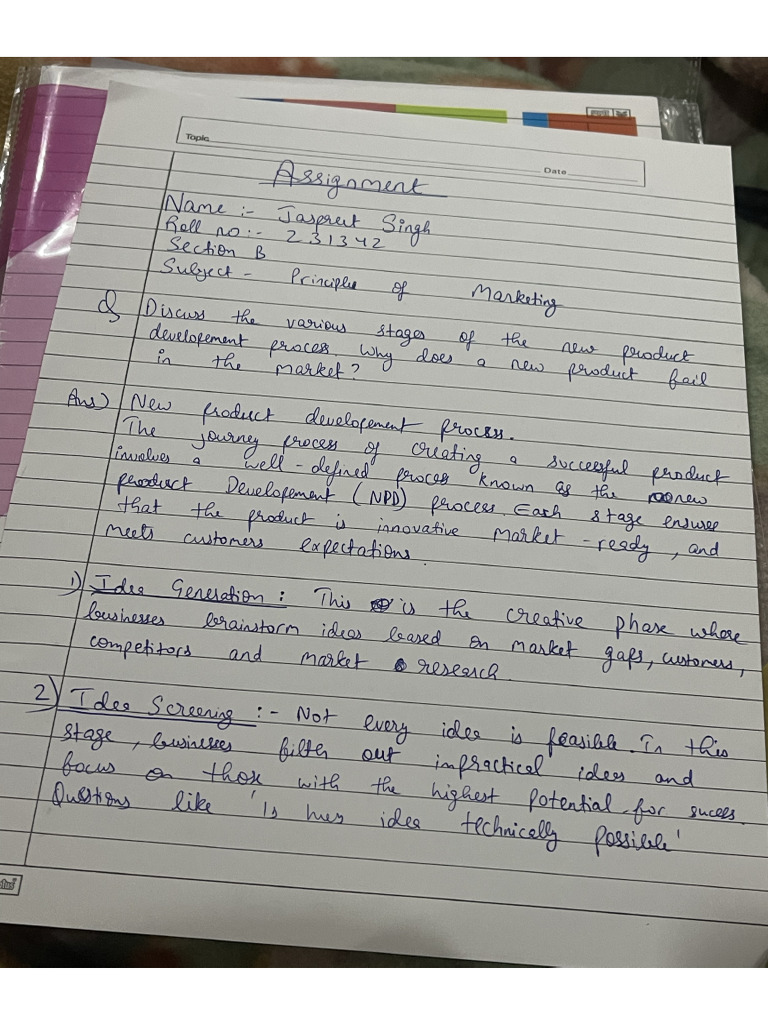 Topic
Date
Assignment
Name :- Jaspreet Singh
Roll no :- 231342
Section B
Subject - Principle of Marketing
Q Discuss the various stages of the new product
developement process. Why does a new product fail
in the market?
Ans) New product developement process.
The journey process of creating a successful product
involves a well-defined process known as the new
product Developement (NPD) process. Each stage ensures
that the product is innovative market-ready, and
meets customers expectations.
1) Idea Generation : This is the creative phase where
businesses brainstorm ideas based on market gaps, customers,
competitors and market research.
2) Idea Screening :- Not every idea is feasible. In this
stage, businesses filter out impractical ideas and
focus on those with the highest potential for sucess.
Questions like 'Is idea technically possible'